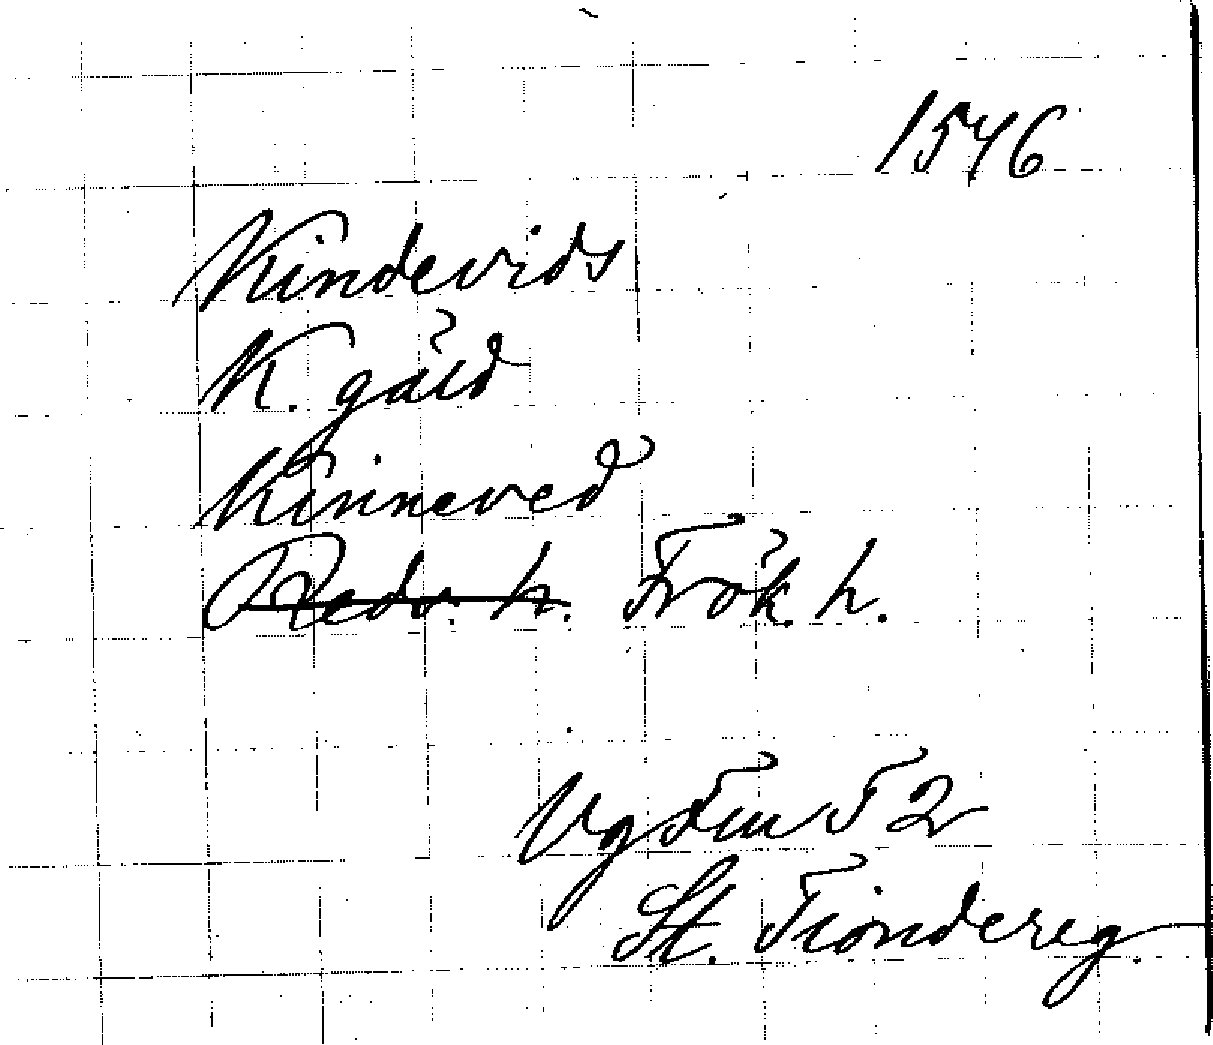 1546
Kindevids
K. gäld
Kinneved
Redv. h. Frök. h.
Vg Fm 52
St. Tiondereg.